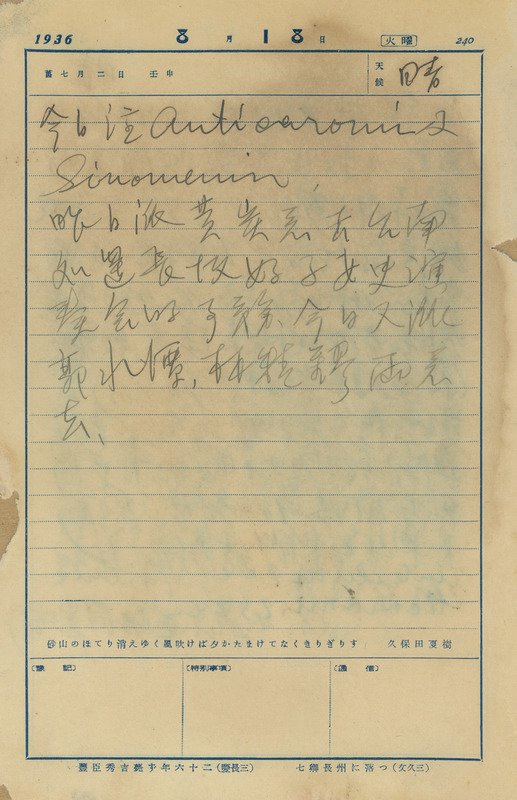 1936 8月18日 火曜 240
舊七月二日 壬申 天候 晴
今日注Anticaromin及
Sinomenin,
昨日派黃炭君去台南
処置長坂好子女史演
奏会的事務、今日又派
郭水潭,林 君
去、
砂山のほてり消えゆく風吹けば夕かたまけてなくきりぎりす 久保田夏樹
〔豫記〕 〔特別事項〕 〔通信〕
豐臣秀吉薨ず年六十二(慶長三) 七聯長州に落つ(文久三)